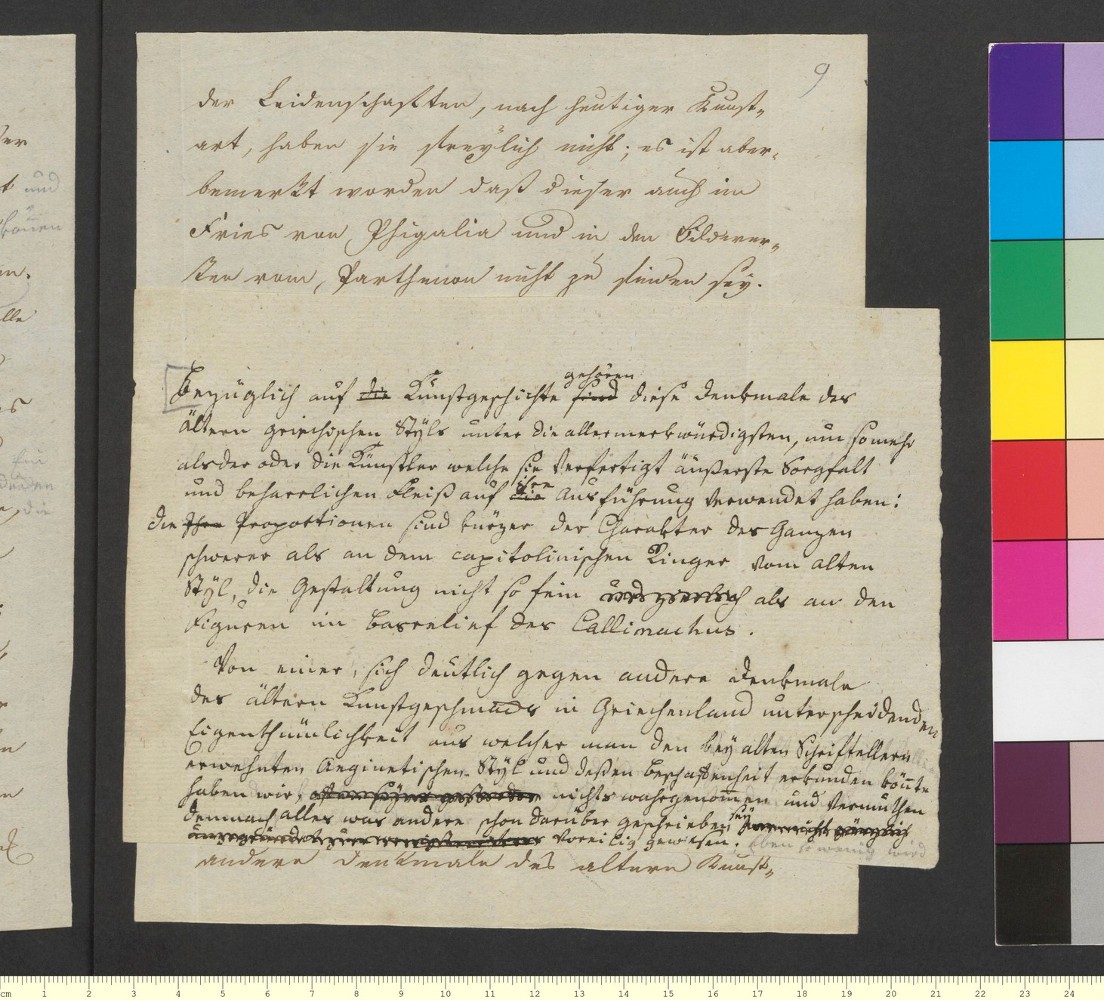 9
der Leidenschafften, nach heutiger Kunst-
art, haben sie freylich nicht; es ist aber
bemerkt worden daß dieser auch im
Fries von Phigalia und in den Bildwer-
ken vom Parthenon nicht zu finden sey.
gehören
Bezüglich auf die Kunstgeschichte sind diese Denkmale des
ältern griechischen Styls unter die allermerkwürdigsten, um so mehr
als der oder die Künstler welche sie verfertigt äußerste Sorgfalt
ihre
und beharrlichen Fleiß auf die Ausführung verwendet haben:
die Ihre Proportionen sind kürzer der Charakter des Ganzen
schwerer als an dem capitolinischen Ringer vom alten
Styl, die Gestaltung nicht so fein und zierlich als an den
Figuren im Basrelief des Callimachus.
Von einer, sich deutlich gegen andere Denkmale
des ältern Kunstgeschmacks in Griechenland unterscheidenden
Eigenthümlichkeit aus welcher man den bey alten Schriftstellern
erwehnten Aeginetischen Styl und deßen Beschaffenheit erkunden könte
haben wir, nichts wahrgenomen und vermuthen
demnach alles was andere schon darüber geschrieben sey
voreilig gewesen. Eben so wenig wird
andere Denkmale des altern Kunst-